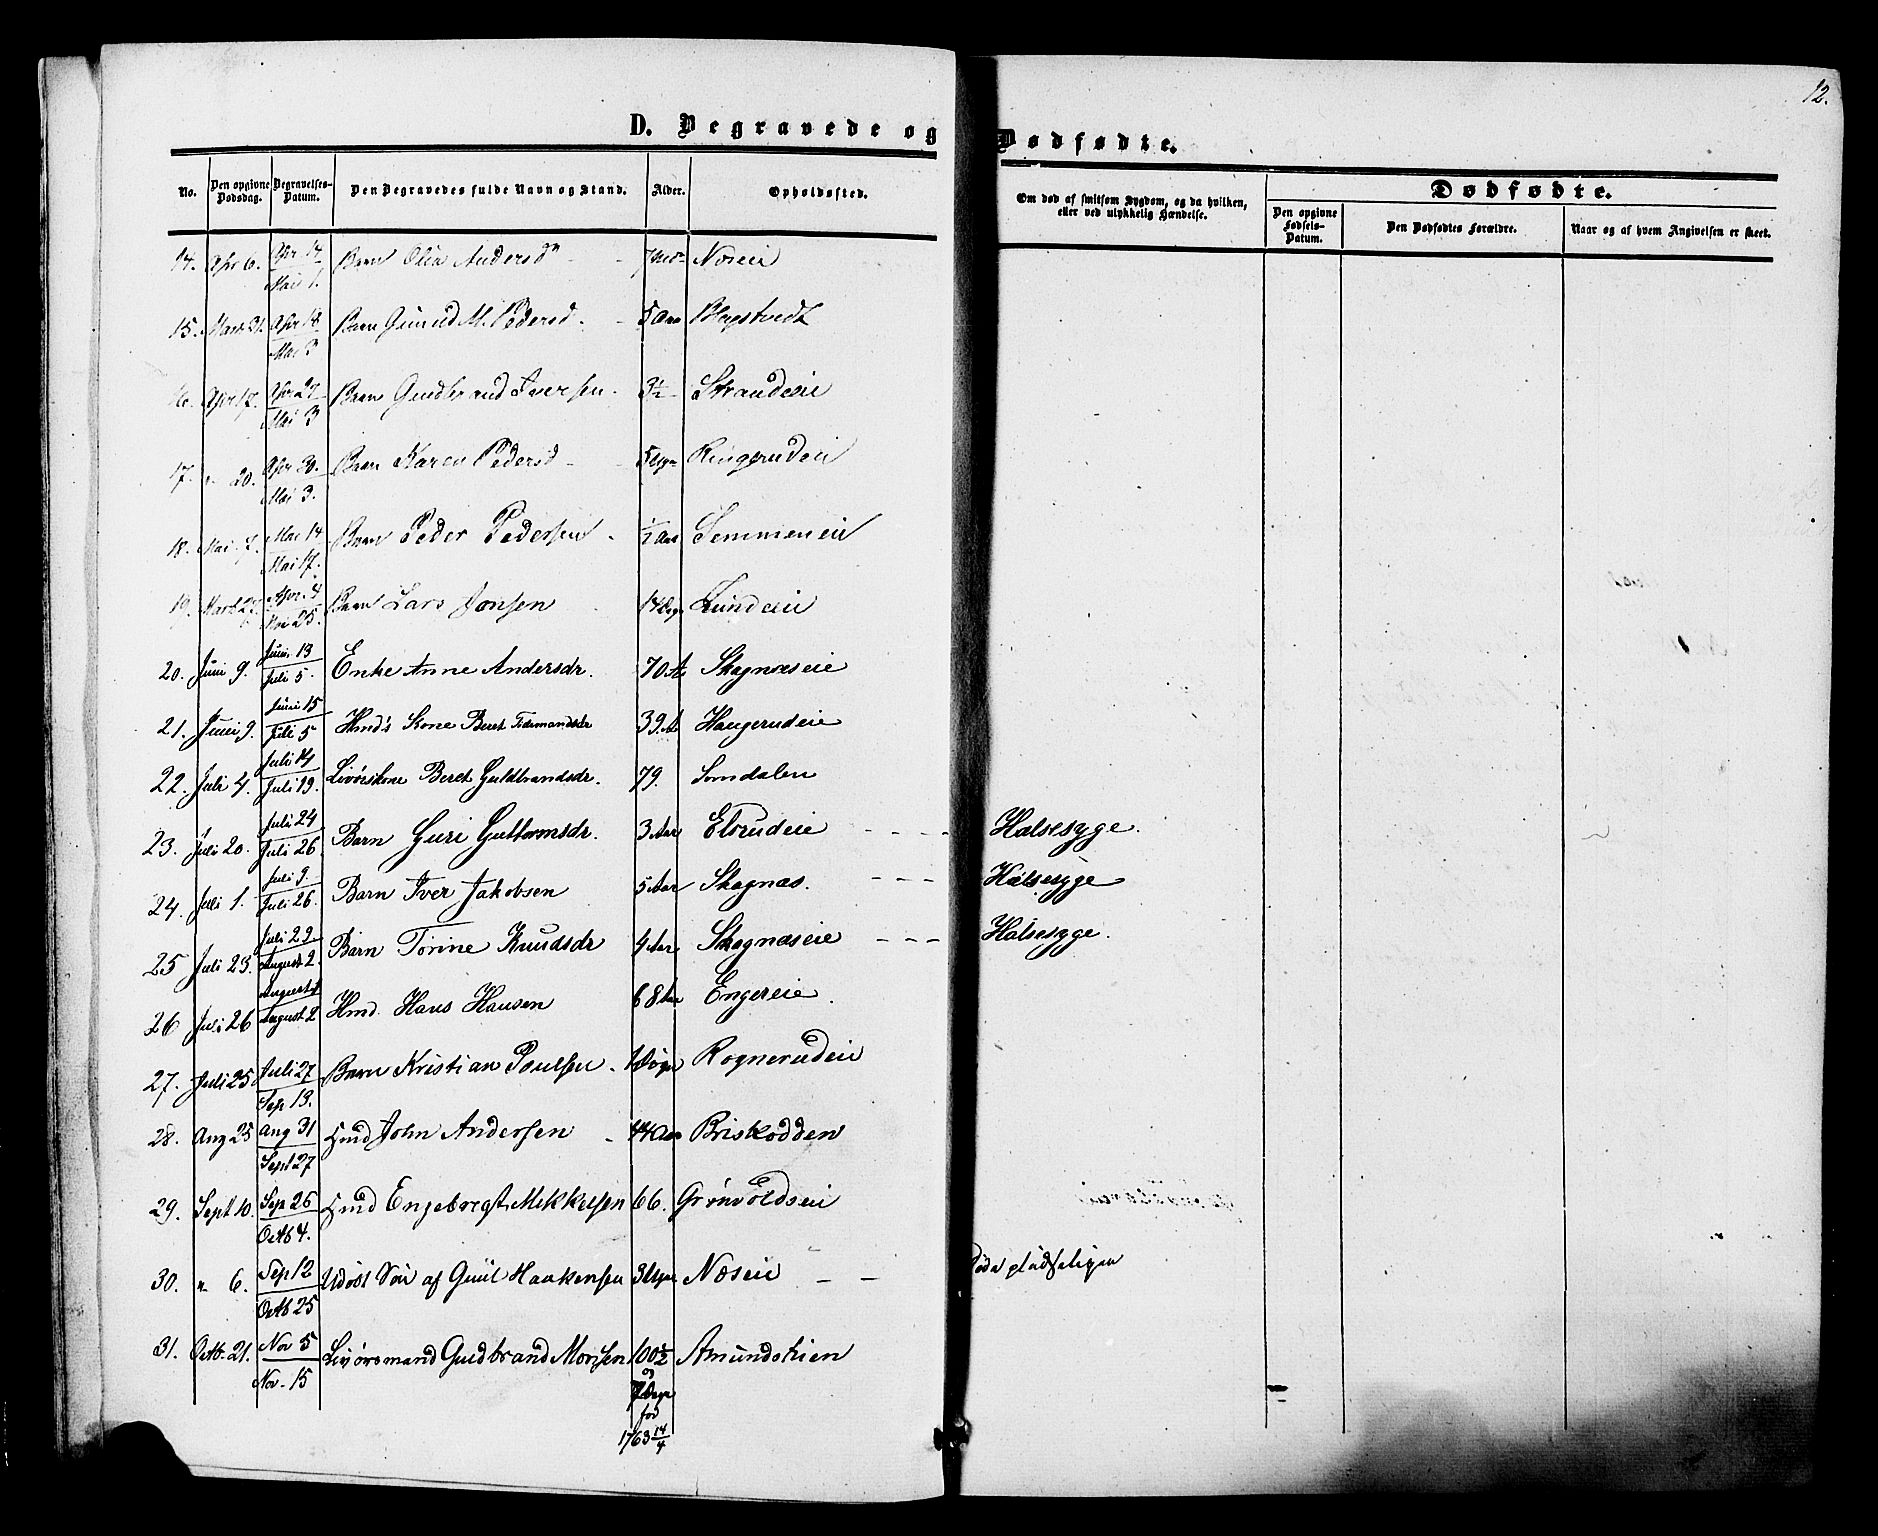 12.
D. Begravede og Dødfødte.
No. Den opgivne Dødsdag. Begravelses-Datum. Den Begravedes fulde Navn og Stand. Alder. Opholdssted. Om død af smitsom Sygdom, og da hvilken, eller ved ulykkelig Hændelse. Dødfødte.
Den opgivne Fødsels-Datum. Den Dødfødtes Forældre. Naar og af hvem Angivelsen er skeet.
14. Apr 6. Apr 14 Mai 1. Barn Olia Andersd Næseie
15. Marts 31. Apr 14 Mai 3 Barn Gunild M. Pedersd. 5 Aar
16. Apr 17. Apr 27 Mai 3 Barn Gudbrand Iversen. 3½ Strandeie
17. " 20. Apr 30. Mai 3. Barn Karen Pedersd 5 Ugr Ringerudeie
18. Mai 7. Mai 14 Mai 17. Barn Peder Pedersen ½ Aar Semmeneie
19. Marts 27. Apr. 4 Mai 25. Barn Lars Jonsen 14 Dgr Lundeie
20. Juni 9. Juni 13 Juli 5. Enke Anne Andersdr. 70 A Skagnæseie
21. Juni 9. Juni 15 Juli 5 Hmd's Kone Beret Tidemandsdr 39. A Haugerudeie
22. Juli 4. Juli 14 Juli 19. Livørskone Beret Guldbrandsdr. 79. Somdalen
23. Juli 20. Juli 24 Juli 26. Barn Guri Guttormsdr. 3 Aar Elsrudeie - - - - Halsesyge.
24. Juli 1. Juli 9. Juli 26. Barn Iver Jakobsen 5 Aar Skagnæs. - - - Halsesyge
25 Juli 23. Juli 29 August 2. Barn Torine Knudsdr 4 Aar Skagnæseie - - - Halsesyge.
26 Juli 26 August 1 August 2 Hmd. Hans Hansen 68 Aar Engereie.
27. Juli 25 Juli 27 Sep 13. Barn Kristian Poulsen. 1 Døgn Rognerudeie
28. Aug 25 Aug 31 Sept 27 Hmd John Andersen 44 Aar Briskodden
29. Sept 10. Sep 26 Octb 4. Hmd Engebregt Mikkelsen 66. Grønvoldseie
30. " 6. Sep 12 Octb 25 Udøbt Søn af Guul Haakensen 3 Ugr Næseie - - Døde pludseligen
31. Octb. 21. Nov 5 Nov. 15 Livørsmand Gudbrand Monsen 100½ Amundshien
og
7 Dage
fød
1763 14/4